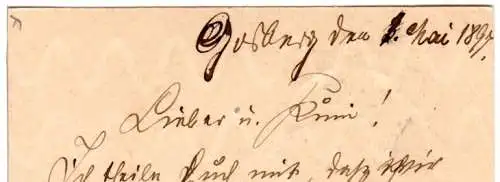 Gosberg den 2. Mai 1897.
Lieber u. Kuni!
Ich theile Euch mit, daß wir